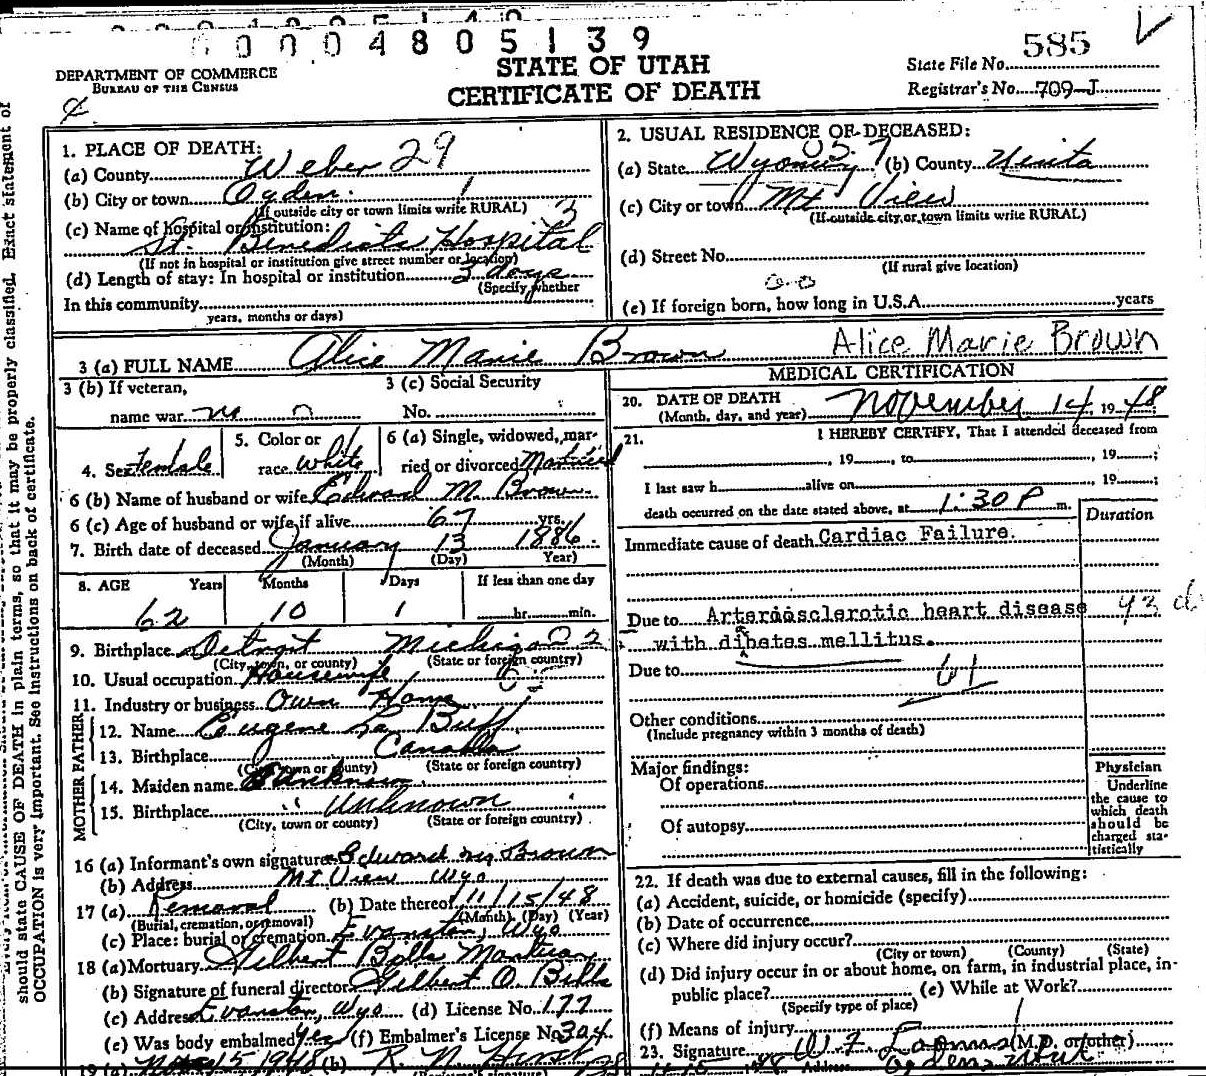 0 0 0 0 4 8 0 5 1 3 9
585
DEPARTMENT OF COMMERCE
BUREAU OF THE CENSUS
STATE OF UTAH
CERTIFICATE OF DEATH
State File No.
Registrar's No. 709-J
1. PLACE OF DEATH:
(a) County Weber 29
(b) City or town Ogden
(If outside city or town limits write RURAL)
(c) Name of hospital or institution: 3
St. Benedicts Hospital
(If not in hospital or institution give street number or location)
(d) Length of stay: In hospital or institution 3 days
(Specify whether
In this community
years, months or days)
2. USUAL RESIDENCE OF DECEASED:
057
(a) State Wyoming (b) County Uinta
(c) City or town Mt View
(If outside city or town limits write RURAL)
(d) Street No.
(If rural give location)
(e) If foreign born, how long in U.S.A. years
3 (a) FULL NAME Alice Marie Brown Alice Marie Brown
3 (b) If veteran,
name war no
3 (c) Social Security
No.
4. Sex Female
5. Color or
race White
6 (a) Single, widowed, mar-
ried or divorced Married
6 (b) Name of husband or wife Edward M Brown
6 (c) Age of husband or wife if alive 67 yrs.
7. Birth date of deceased January 13 1886
(Month) (Day) Year)
8. AGE Years Months Days If less than one day
62 10 1 hr. min.
9. Birthplace Detroit Michigan
(City, town, or county) (State or foreign country)
10. Usual occupation Housewife
11. Industry or business Own Home
FATHER
12. Name Eugene La Buff
13. Birthplace Canada
(City town or county) (State or foreign country)
MOTHER
14. Maiden name Unknown
15. Birthplace " Unknown
(City, town or county) (State or foreign country)
16 (a) Informant's own signature Edward M Brown
(b) Address Mt View Wyo
17 (a) Removal (b) Date thereof 11/15/48
(Burial, cremation, or removal) (Month) (Day) (Year)
(c) Place: burial or cremation Evanston, Wyo
18 (a) Mortuary Gilbert Bills Mortuary
(b) Signature of funeral director Gilbert O. Bills
(c) Address Evanston, Wyo (d) License No. 177
(e) Was body embalmed yes (f) Embalmer's License No. 304
19 (a) Nov 15 1948 (b) R. N. Hirst
MEDICAL CERTIFICATION
20. DATE OF DEATH
(Month, day, and year) November 14, 1948
21. I HEREBY CERTIFY, That I attended deceased from
, 19 , to , 19 ;
I last saw h alive on , 19 ;
death occurred on the date stated above, at 1:30 P m.
Duration
Immediate cause of death Cardiac Failure.
Due to Arteroosclerotic heart disease 93 d
with dibetes mellitus.
Due to 61
Other conditions
(Include pregnancy within 3 months of death)
Major findings:
Of operations
Of autopsy
Physician
Underline
the cause to
which death
should be
charged sta-
tistically
22. If death was due to external causes, fill in the following:
(a) Accident, suicide, or homicide (specify)
(b) Date of occurrence
(c) Where did injury occur?
(City or town) (County) (State)
(d) Did injury occur in or about home, on farm, in industrial place, in
public place? (e) While at Work?
(Specify type of place)
(f) Means of injury
23. Signature (M.D. or other)
Address Ogden, Utah
should state CAUSE OF DEATH in plain terms, so that it may be properly classified. Exact statement of
OCCUPATION is very important. See instructions on back of certificate.